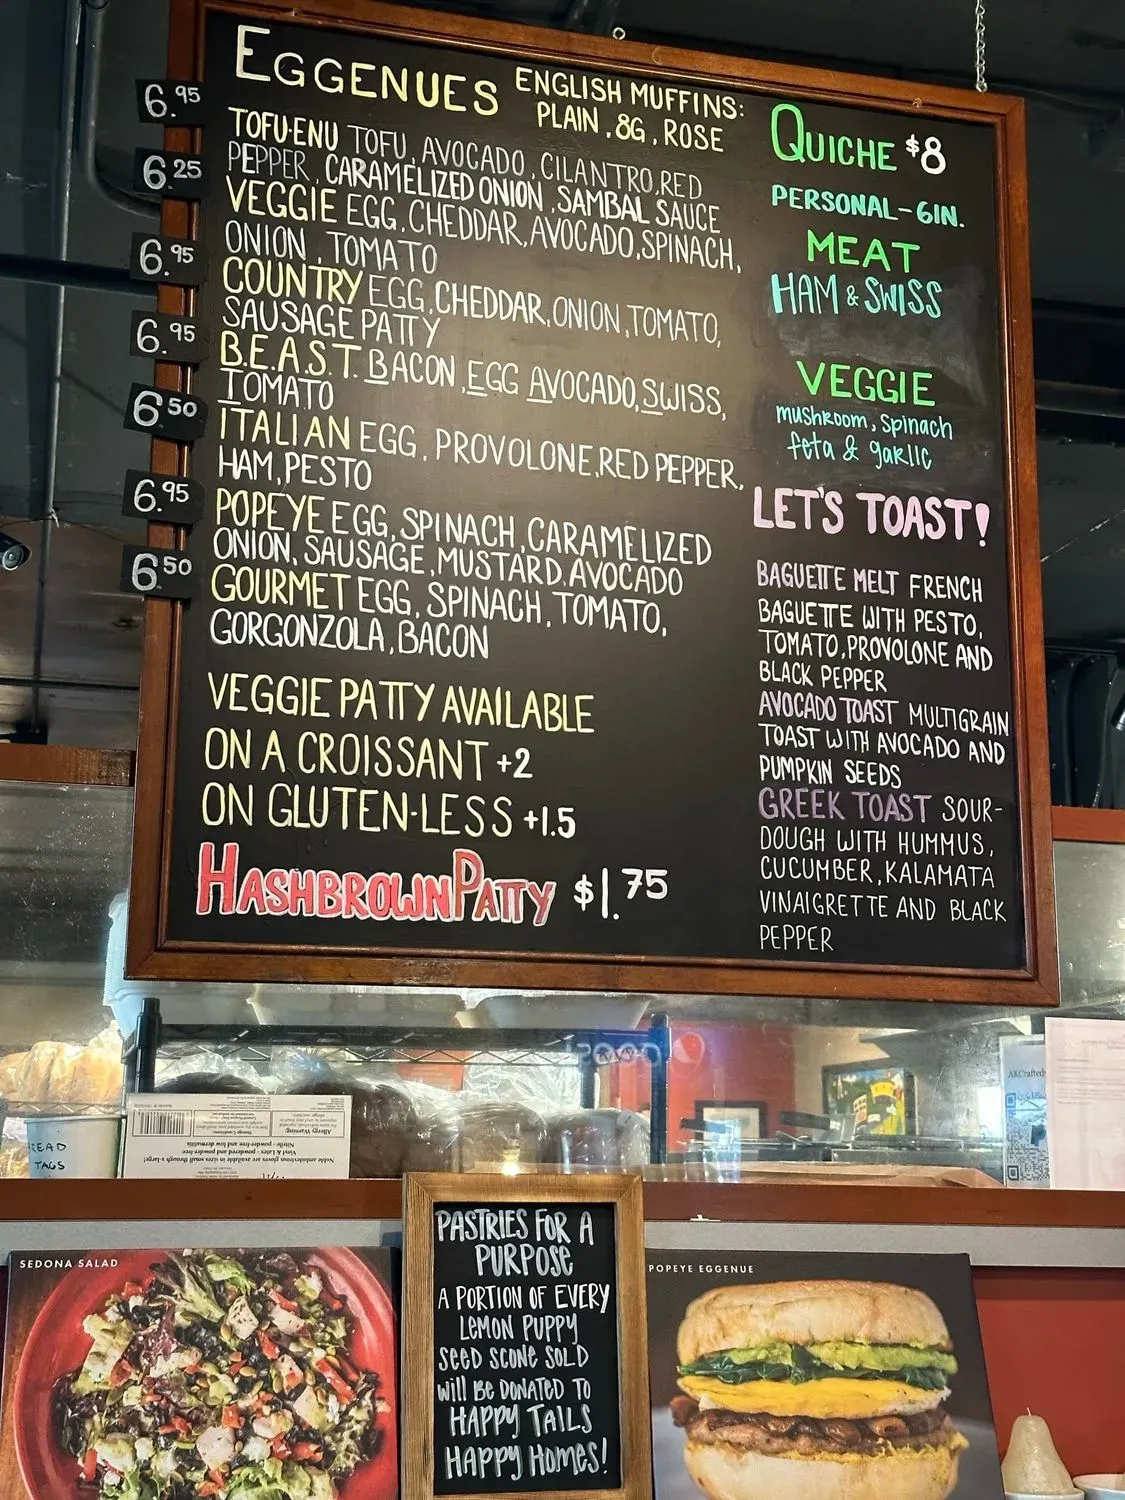 EGGENUES
ENGLISH MUFFINS:
PLAIN, 8G, ROSE
6.95
TOFU-ENU TOFU, AVOCADO, CILANTRO, RED
PEPPER, CARAMELIZED ONION, SAMBAL SAUCE
6.25
VEGGIE EGG, CHEDDAR, AVOCADO, SPINACH,
ONION, TOMATO
6.95
COUNTRY EGG, CHEDDAR, ONION, TOMATO,
SAUSAGE PATTY
6.95
B.E.A.S.T. BACON, EGG AVOCADO, SWISS,
TOMATO
6.50
ITALIAN EGG, PROVOLONE, RED PEPPER,
HAM, PESTO
6.95
POPEYE EGG, SPINACH, CARAMELIZED
ONION, SAUSAGE, MUSTARD, AVOCADO
6.50
GOURMET EGG, SPINACH, TOMATO,
GORGONZOLA, BACON
VEGGIE PATTY AVAILABLE
ON A CROISSANT +2
ON GLUTEN-LESS +1.5
HASHBROWN PATTY $1.75
QUICHE $8
PERSONAL-6IN.
MEAT
HAM & SWISS
VEGGIE
mushroom, spinach
feta & garlic
LET'S TOAST!
BAGUETTE MELT FRENCH
BAGUETTE WITH PESTO,
TOMATO, PROVOLONE AND
BLACK PEPPER
AVOCADO TOAST MULTIGRAIN
TOAST WITH AVOCADO AND
PUMPKIN SEEDS
GREEK TOAST SOUR-
DOUGH WITH HUMMUS,
CUCUMBER, KALAMATA
VINAIGRETTE AND BLACK
PEPPER
READ
TAGS
Allergy Warning:
Noble ambidextrous gloves are available in sizes small through x-large!
Vinyl & Latex - powdered and powder-free
Nitrile - powder-free and low dermatitis
AKCrafted
SEDONA SALAD
PASTRIES FOR A
PURPOSE
A PORTION OF EVERY
LEMON PUPPY
SEED SCONE SOLD
Will BE DONATED TO
HAPPY TAILS
HAPPY HOMES!
POPEYE EGGENUE